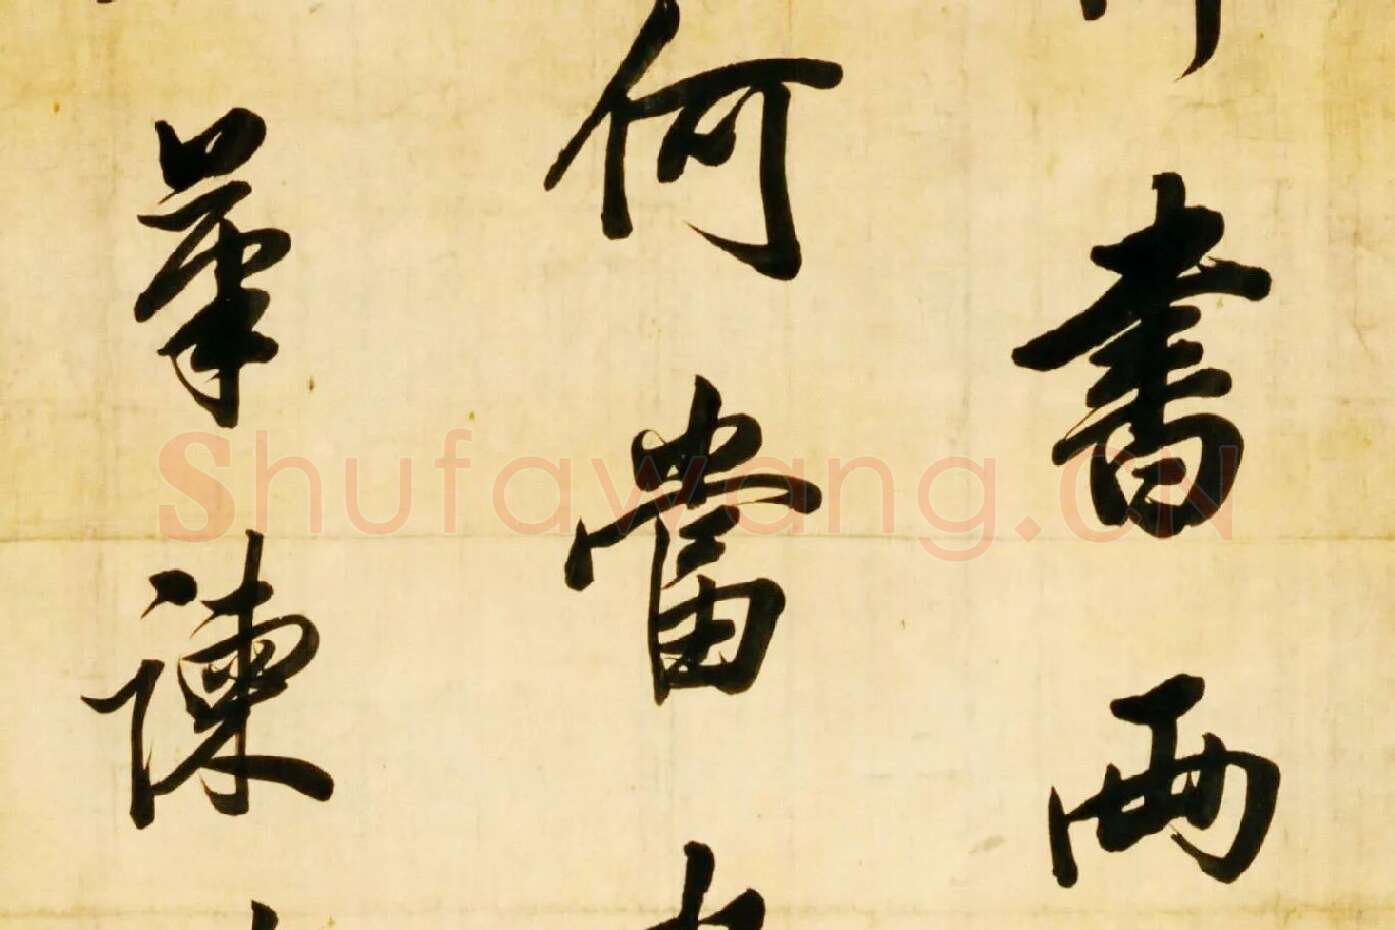 書兩
何當
筆諫
Shufawang.CN